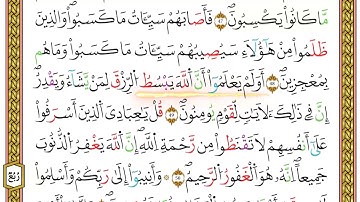 مَّا كَانُوا۟ يَكْسِبُونَ ۝٥٠ فَأَصَابَهُمْ سَيِّـَٔاتُ مَا كَسَبُوا۟ ۚ وَٱلَّذِينَ
ظَلَمُوا۟ مِنْ هَـٰٓؤُلَآءِ سَيُصِيبُهُمْ سَيِّـَٔاتُ مَا كَسَبُوا۟ وَمَا هُم
بِمُعْجِزِينَ ۝٥١ أَوَلَمْ يَعْلَمُوٓا۟ أَنَّ ٱللَّهَ يَبْسُطُ ٱلرِّزْقَ لِمَن يَشَآءُ وَيَقْدِرُ ۚ
إِنَّ فِى ذَٰلِكَ لَـَٔايَـٰتٍ لِّقَوْمٍ يُؤْمِنُونَ ۝٥٢ ۞ قُلْ يَـٰعِبَادِىَ ٱلَّذِينَ أَسْرَفُوا۟
عَلَىٰٓ أَنفُسِهِمْ لَا تَقْنَطُوا۟ مِن رَّحْمَةِ ٱللَّهِ ۚ إِنَّ ٱللَّهَ يَغْفِرُ ٱلذُّنُوبَ
جَمِيعًا ۚ إِنَّهُۥ هُوَ ٱلْغَفُورُ ٱلرَّحِيمُ ۝٥٣ وَأَنِيبُوٓا۟ إِلَىٰ رَبِّكُمْ وَأَسْلِمُوا۟
رُبُع